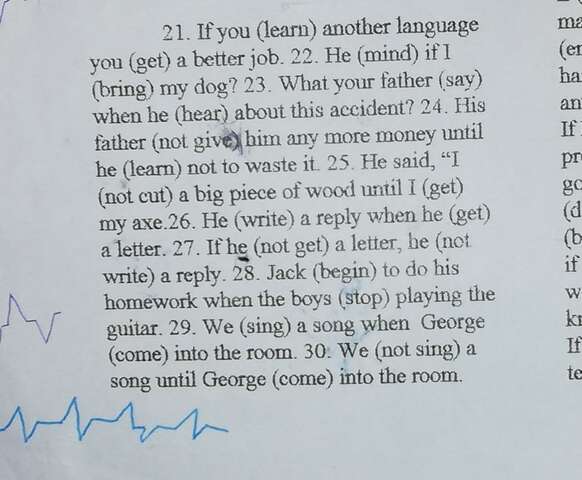 21. If you (learn) another language
you (get) a better job. 22. He (mind) if I
(bring) my dog? 23. What your father (say)
when he (hear) about this accident? 24. His
father (not give) him any more money until
he (learn) not to waste it. 25. He said, “I
(not cut) a big piece of wood until I (get)
my axe.26. He (write) a reply when he (get)
a letter. 27. If he (not get) a letter, he (not
write) a reply. 28. Jack (begin) to do his
homework when the boys (stop) playing the
guitar. 29. We (sing) a song when George
(come) into the room. 30. We (not sing) a
song until George (come) into the room.
ma
(er
ha
an
If
pr
go
(d
(b
if
w
kr
If
te